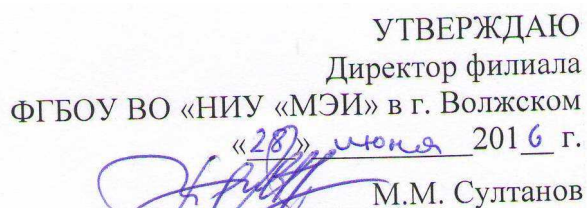 УТВЕРЖДАЮ
Директор филиала
ФГБОУ ВО «НИУ «МЭИ» в г. Волжском
«28» июня 2016 г.
М.М. Султанов